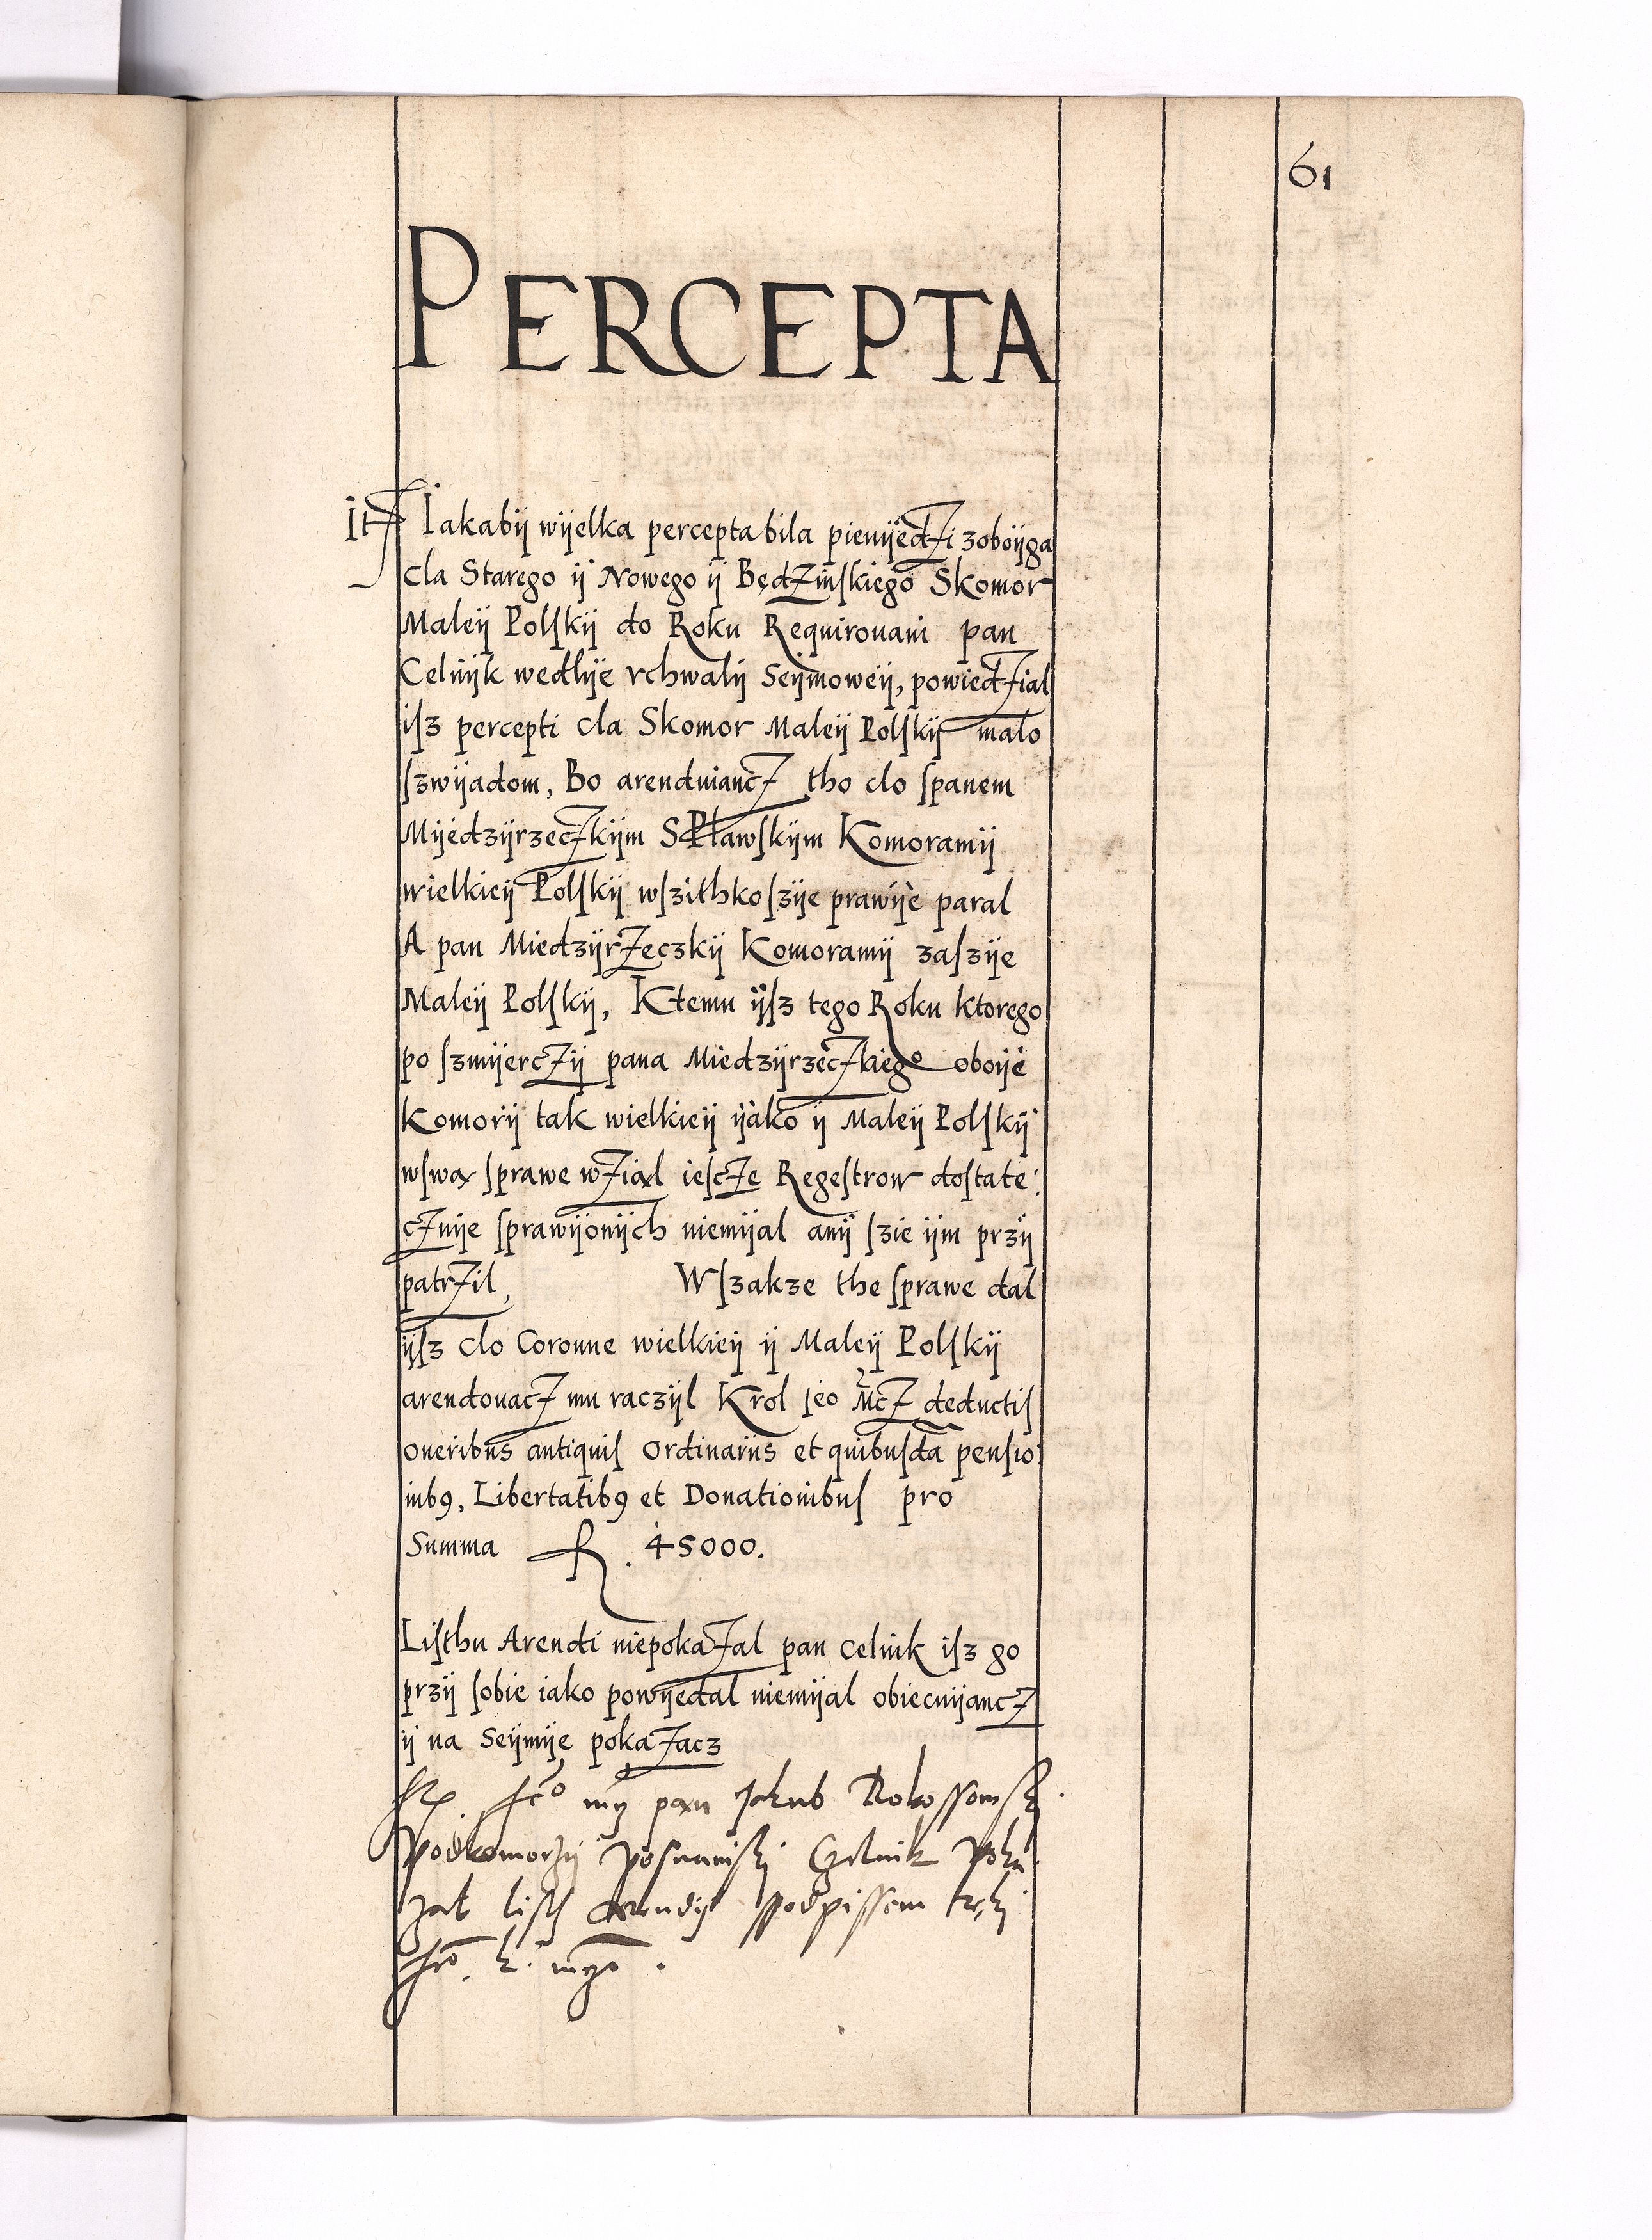 61
PERCEPTA
It Iakabÿ wÿelka percepta bila pienÿedzi zoboÿga
cla Starego ÿ Nowego ÿ Będzinſkiego Skomor
Maleÿ Polſkÿ do Roku Requirouani pan
Celnÿk wedlÿe vchwalÿ Seÿmoweÿ, powiedzial
iſz percepti cla Skomor Maleÿ Polſkÿ malo
ſzwÿadom, Bo arenduiancz tho clo ſpanem
Mÿedzÿrzeczkÿm Komoramÿ
wielkieÿ Polſkÿ wſzithko ſzÿe prawÿe paral
A pan Miedzÿrzeczkÿ Komoramÿ zaſzÿe
Maleÿ Polſkÿ, Ktemu ÿſz tego Roku ktorego
po ſzmÿerczÿ pana Miedzÿrzeczkiego oboÿe
Komorÿ tak wielkieÿ ÿako ÿ Maleÿ Polſkÿ
wſwa ſprawe wzial ieſcze Regeſtrow doſtate:
cznÿe ſprawÿonÿch niemÿal anÿ ſzie ÿm przÿ
patrzil, Wſzakze the ſprawe dal
ÿſz clo Coronne wielkieÿ ÿ Maleÿ Polſkÿ
arendouacz mu raczÿl Krol Jeo Mcz deductiſ
oneribus antiquiſ ordinariis et quibuſdã penſio:
nibꝯ, Libertatibꝯ et Donationibuſ pro
Summa fl. 45000.
Liſthu Arendi niepokazal pan celnik iſz go
przÿ ſobie iako powÿedal niemÿal obiecuÿancz
ÿ na Seÿmÿe pokazacz
pan Jakub Rokoſſowſki
Podkomorzÿ Poſnaniſki Czelnik Poka
zal liſth Arendÿ ſpodpiſſem